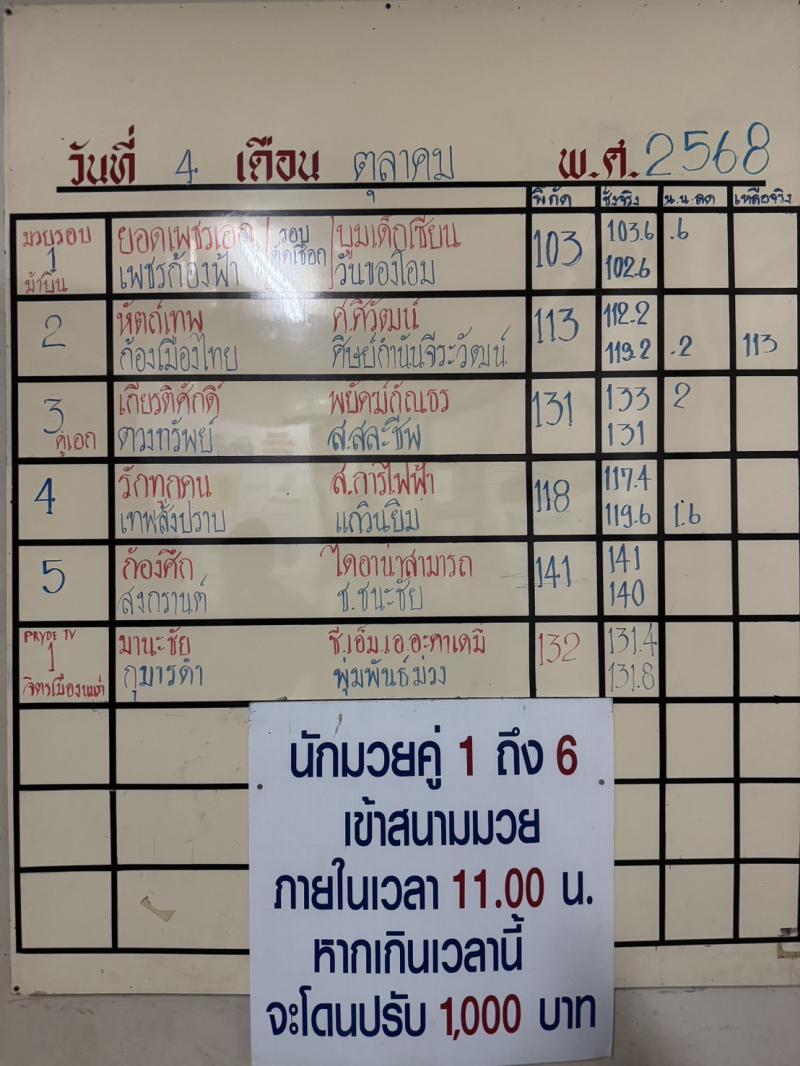 วันที่ 4 เดือน ตุลาคม พ.ศ. 2568
พิกัด ชั่งจริง น.น.ลด เหลือจริง
มวยรอบ 1 ม้าบิน
ยอดเพชรเอก รอบคัดเลือก บูมเด็กเซียน 103 103.6 .6
เพชรก้องฟ้า วันของโอม 102.6
2 หัตถ์เทพ ศ.ศิวัฒน์ 113 112.2
ก้องเมืองไทย ศิษย์กำนันจีระวัฒน์ 113.2 .2 113
3 คู่เอก เกียรติศักดิ์ พยัคฆ์กัณธร 131 133 2
ดวงทรัพย์ ส.สละชีพ 131
4 รักทุกคน ส.การไฟฟ้า 118 117.4
เทพสั่งปราบ แก้วินยิม 119.6 1.6
5 ก้องศึก ไดอาน่าสามารถ 141 141
สงกรานต์ ช.ชนะชัย 140
PRYDE TV 1
มานะชัย ซี.เอ็ม.เอ.อะคาเดมี่ 132 131.4
กุมารดำ พุ่มพันธ์ม่วง 131.8
นักมวยคู่ 1 ถึง 6
เข้าสนามมวย
ภายในเวลา 11.00 น.
หากเกินเวลานี้
จะโดนปรับ 1,000 บาท